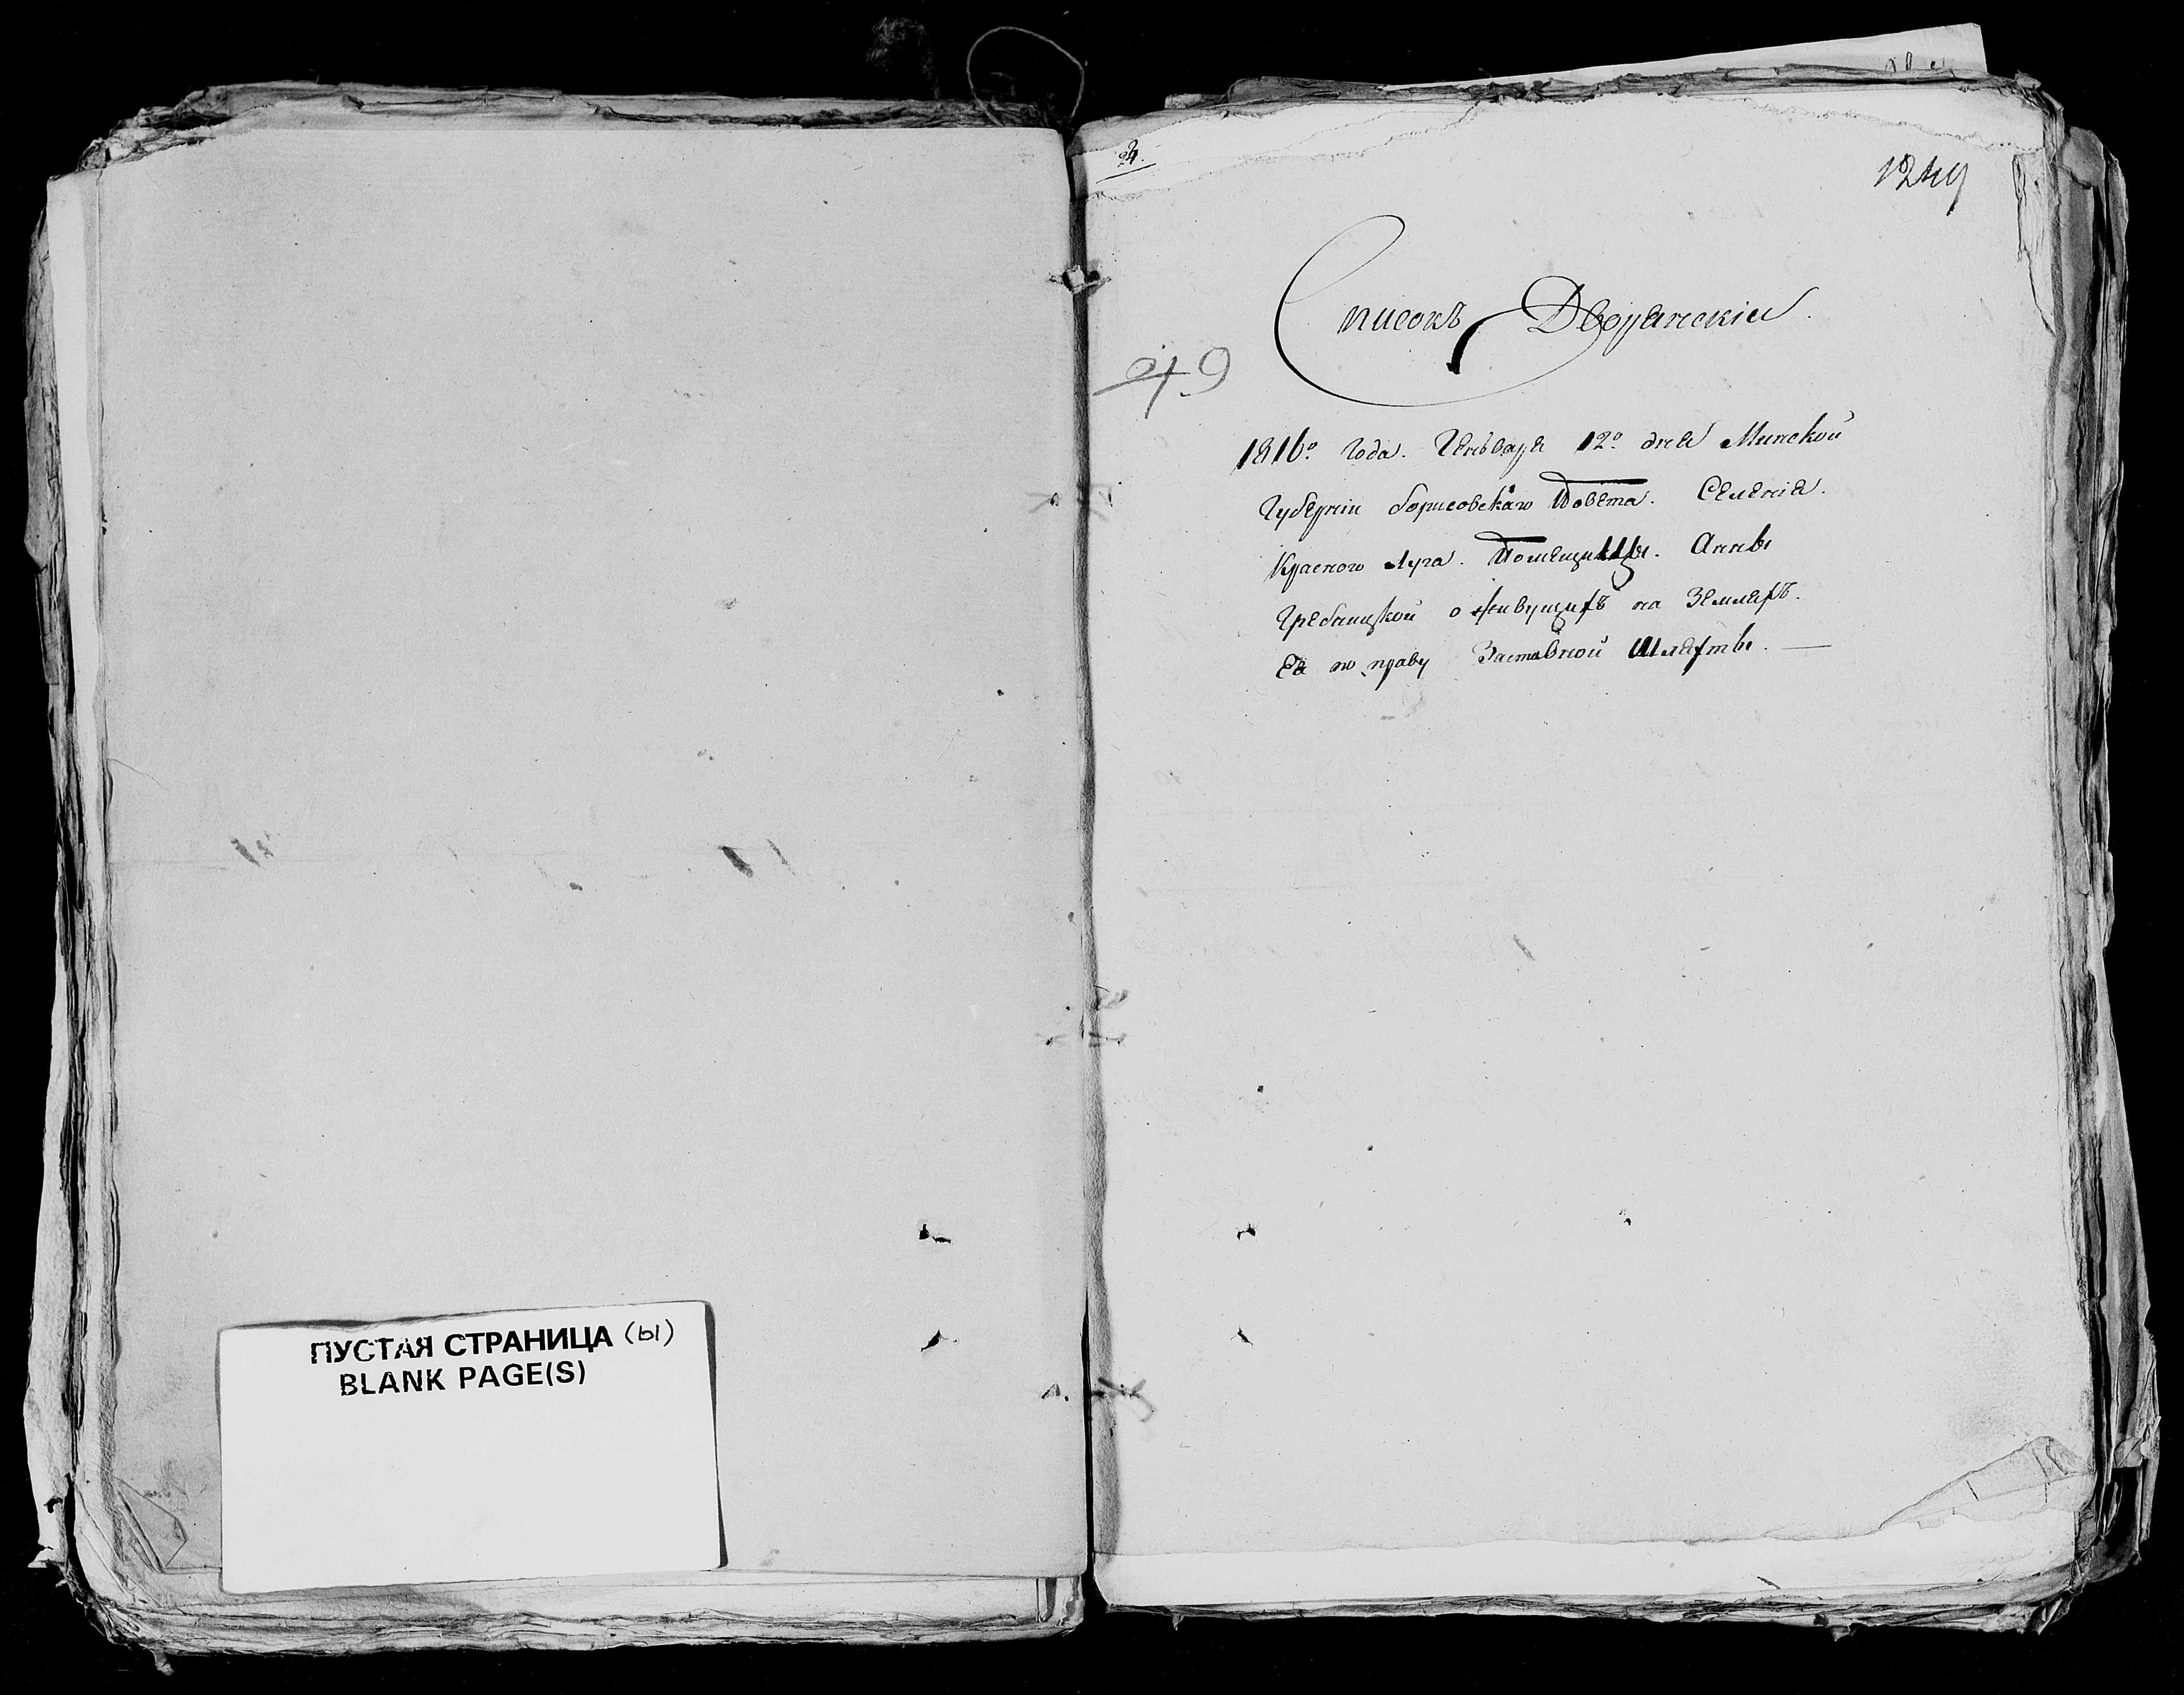 ПУСТАЯ СТРАНИЦА (ы)
BLANK PAGE(S)
24.
1249
Списокъ Дворянскіи.
49
1816º года. Генваря 12º дня Минской
Губерніи борисовскаго Повета. Селенія.
Красного Луга. Помещицы. Анны
Гребницкой о живущихъ на Земляхъ.
Ея по праву Заставной Шляхты. —